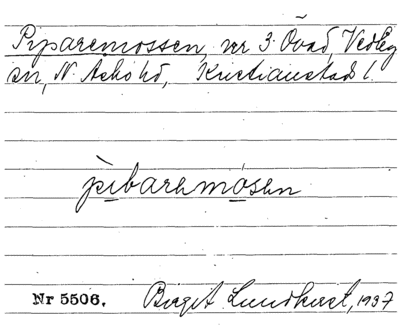 Piparemossen, nr 3 Övad, Vedby
sn, N. Åsbo hd, Kristianstads l.
pìbarəmósən
Nr 5506.
Birgit Lundkvist, 1937